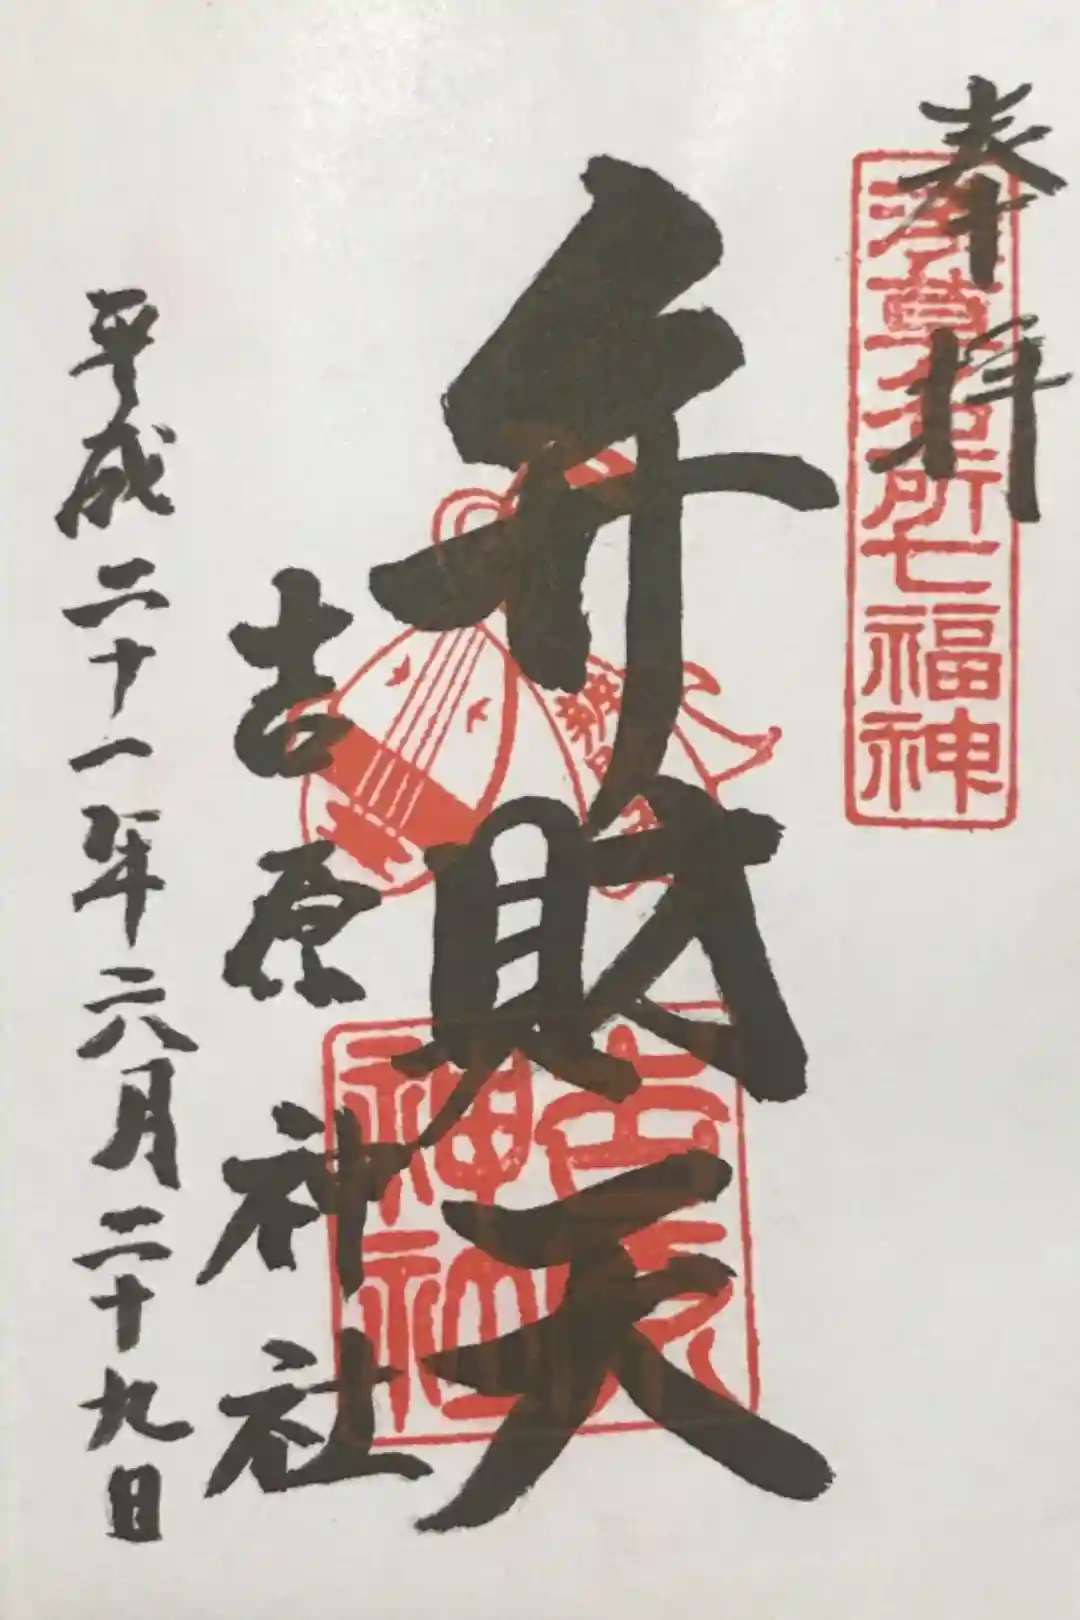 奉拝
浅草名所七福神
弁財天
吉原神社
吉原神社
平成二十一年六月二十九日